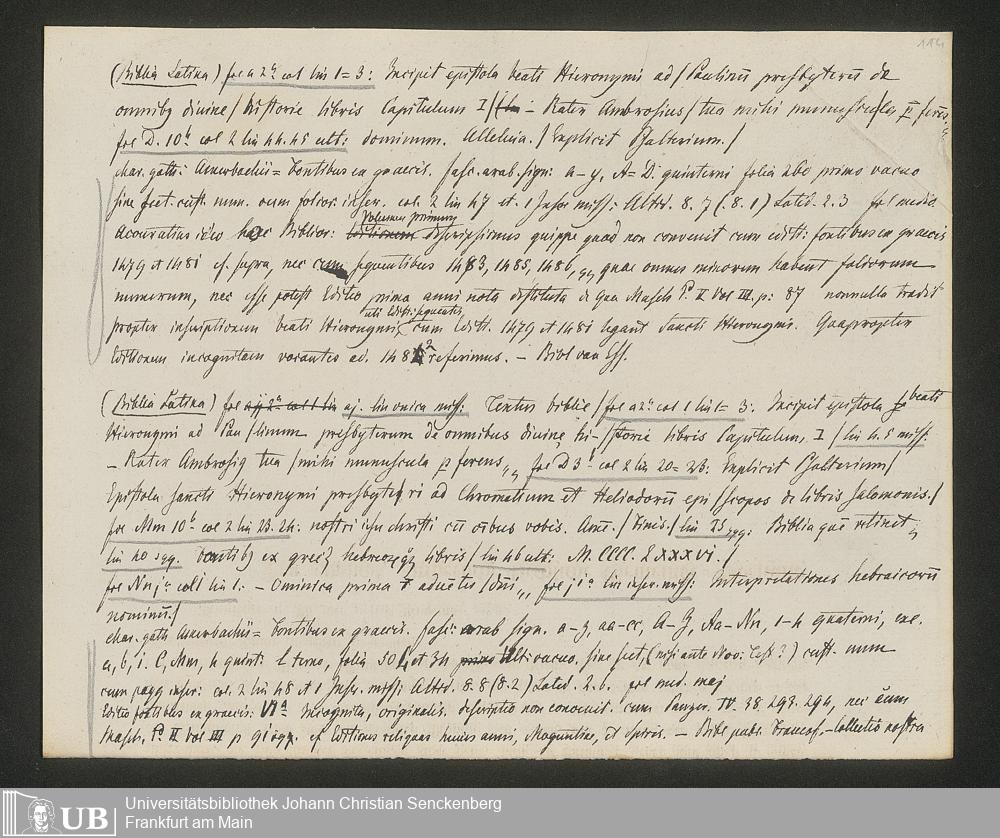 114
(Biblia Latina) fol a 2ª col 1 lin 1=3: Incipit epistola beati Hieronymi ad / Paulinū presbyterū de
omnibꝫ divine / historie libris Capitulum I / - Rater Ambrosius / tua mihi munuscula
fol D. 10ᵇ col 2 lin 44.45 ult: dominum. Alleluia. / Explicit Psalterium. /
char. goth: Amerbachii= Fontibus ex graecis. sign: a-y, A=D. quinterni folia 260 primo vacuo
sine num. cum folior: inscr. col. 2 lin 47 et. 1 Altid. 8. 7 (8. 1) Latid. 2. 3 fol medio
Accuratius ideo haec Biblior: Volumen primum descripsimus quippe quod non convenit cum editt: fontibus ex graecis
1479 et 1481 cf. supra, nec cum sequentibus 1483, 1485, 1486, quae omnes minorem habent foliorum
numerum, nec esse potest Editio prima anni nota destituta de qua Masch P. II Vol III. p: 87 nonnulla tradit
propter inscriptionem beati Hieronymi, uti Editt: sequentes, cum Editt. 1479 et 1481 legant Sancti Hieronymi. Quapropter
Editionem incognitam vocantes ad. 148 referimus. - Bibl van Ess.
(Biblia Latina) fol aj. lin unica miss: Textus biblie / fol a 2ª col 1 lin 1= 3: Incipit epistola beati
Hieronymi ad Pau / linum presbyterum de omnibus divine hi- / storie libris Capitulum, I / lin 4.5 miss:
- Rater Ambrosiꝰ tua / mihi munuscula p ferens, fol D 3 col 2 lin 20= 23: Explicit Psalterium /
Epistola sancti Hieronymi presbyteri ad Chromatium et Heliodorū epi / scopos de libris Salomonis. /
fol Mm 10ᵇ col 2 lin 23. 24. nostri ihesu christi cū oībus vobis. Amē. / Finis. / lin 35 sqq: Biblia quē retinet
lin 40 sqq. libris / lin 46 ult: M. CCCC. LXXXVI. /
fol Nn jª col 1 lin 1: - Ominica prima adventus / dñi, fol j 1ª lin Interpretationes hebraicorū
nominū. /
char. goth Amerbachii= Fontibus ex graecis. sign. a-z, aa-cc, A-Z, Aa-Nn, 1-h quaterni, exc.
a, b, i. C, Mm, h quint: l terno, folia 504 et 34 ult: vacuo, sine sect, (nisi ante Nov: Test?) cust. num
cum pagg inscr: col. 2 lin 48 et 1 Altid. 8. 8 (8. 2) Latid. 2. 6. fol med. maj
Editio fontibus ex graecis: VIª Incognita, originalis. descriptio non convenit. cum Panzer. IV. 38. 293. 294, nec cum
Masch. P. II Vol III p 91 sqq. cf Editiones reliquas huius anni, Moguntine, et Spiris. - Bibl. publ. Francof. - Collectio nostra
UB
Universitätsbibliothek Johann Christian Senckenberg
Frankfurt am Main